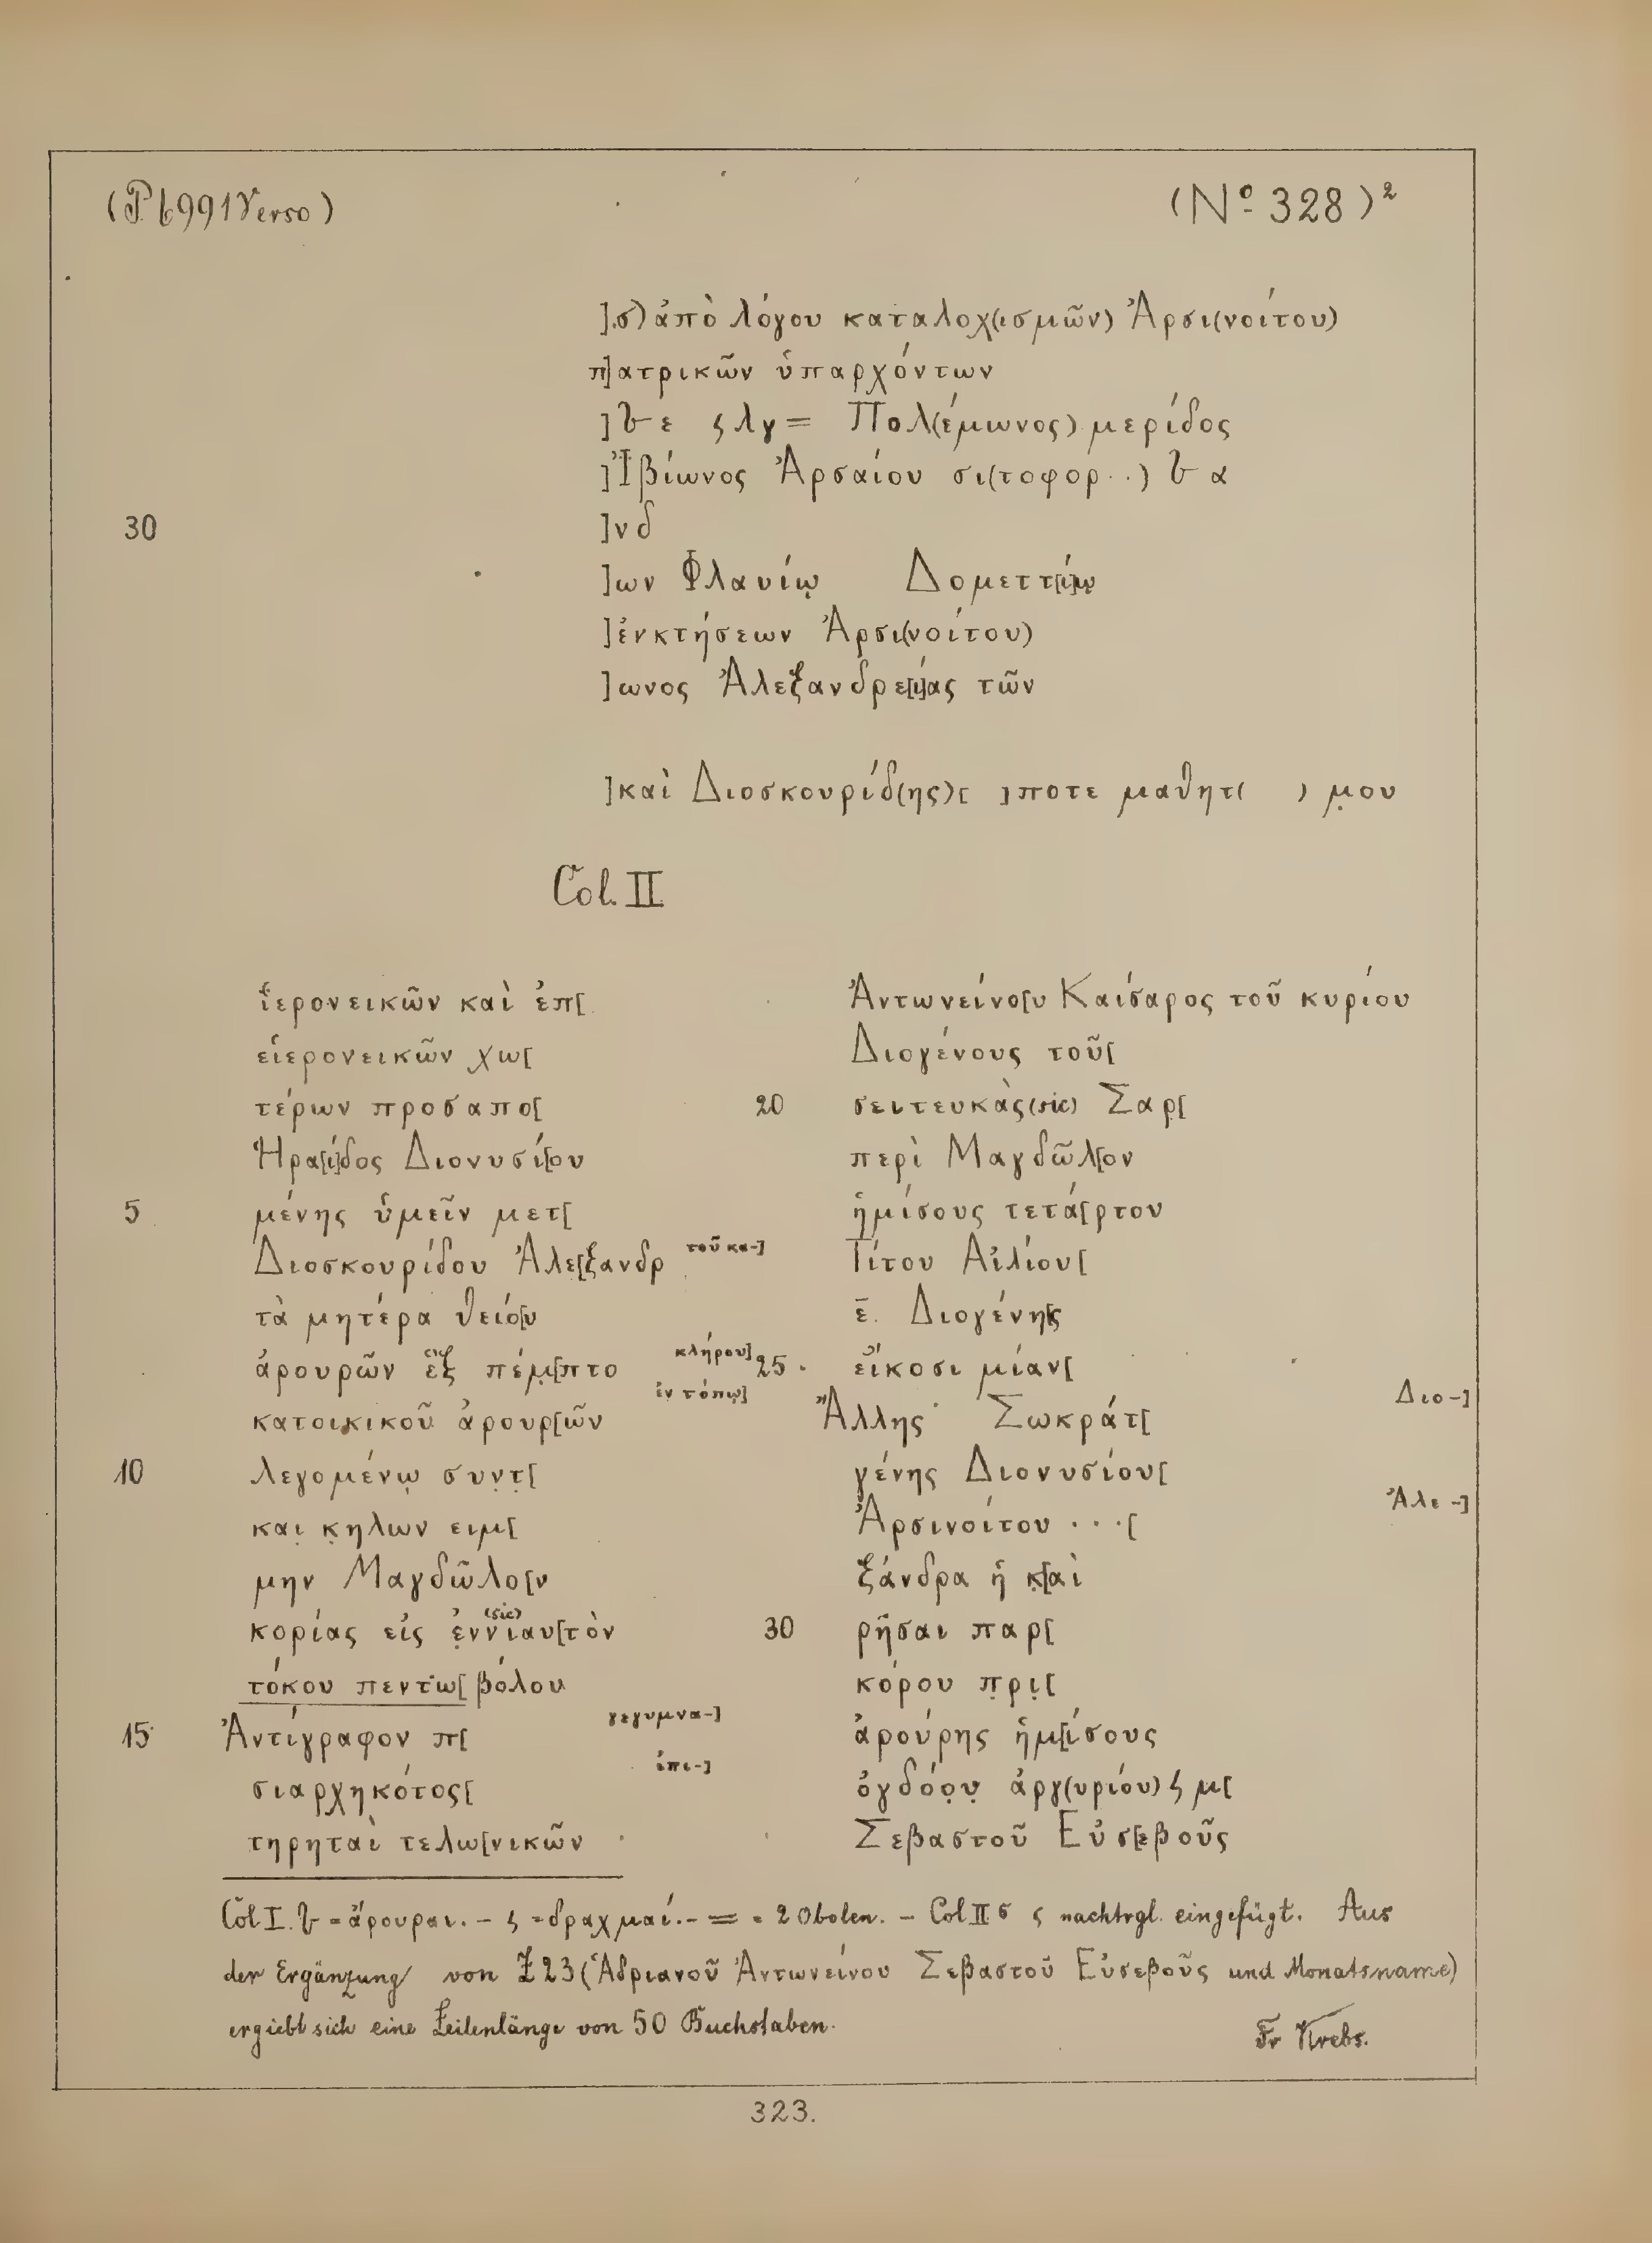 (P 6991 Verso)
(No. 328)²
].σ) ἀπὸ λόγου καταλοχ(ισμῶν) Ἀρσι(νοίτου)
π]ατρικῶν ὑπαρχόντων
] ε ϛ λγ = Πολ(έμωνος) μερίδος
]Ἰβίωνος Ἀρσαίου σι(τοφορ..) α
30 ]νδ
]ων Φλαυίῳ Δομεττ[ί]ῳ
]ἐνκτήσεων Ἀρσι(νοίτου)
]ωνος Ἀλεξανδρε[ί]ας τῶν
]καὶ Διοσκουρίδ(ης)[ ]ποτε μαθητ( ) μου
Col. II
ἱερονεικῶν καὶ ἐπ[
εἱερονεικῶν χω[
τέρων προσαπο[
Ἡρα[ί]δος Διονυσί[ου
5 μένης ὑμεῖν μετ[
Διοσκουρίδου Ἀλε[ξανδρ τοῦ κα-]
τὰ μητέρα θείο[υ
ἀρουρῶν ἓξ πέμ[πτο κλήρου]
κατοικικοῦ ἀρουρ[ῶν ἐν τόπῳ]
10 λεγομένῳ συντ[
και κηλων ειμ[
μην Μαγδῶλο[ν
κορίας εἰς ἐννιαυ[τὸν (sic)
τόκου πεντω[βόλου
15 Ἀντίγραφον π[ γεγυμνα-]
σιαρχηκότος[ ἐπι-]
τηρηταὶ τελω[νικῶν
Ἀντωνείνο[υ Καίσαρος τοῦ κυρίου
Διογένους τοῦ[
20 σειτευκὰς (sic) Σαρ[
περὶ Μαγδῶλ[ον
ἡμίσους τετά[ρτον
Τίτου Αἰλίου[
ε̄. Διογένη[ς
25 εἴκοσι μίαν[
Ἄλλης Σωκράτ[ Διο-]
γένης Διονυσίου[
Ἀρσινοίτου ...[ Ἀλε-]
ξάνδρα ἡ κ[αὶ
30 ρῆσαι παρ[
κόρου πρι[
ἀρούρης ἡμ[ίσους
ὀγδόου ἀργ(υρίου) ϛ μ[
Σεβαστοῦ Εὐσ[εβοῦς
Col I. = ἄρουραι. – ϛ = δραχμαί. – = = 2 Obolen. – Col II 6 ς nachtrgl. eingefügt. Aus
der Ergänzung von Z 23 (Ἁδριανοῦ Ἀντωνείνου Σεβαστοῦ Εὐσεβοῦς und Monatsname)
ergiebt sich eine Zeilenlänge von 50 Buchstaben.
Fr Krebs.
323.